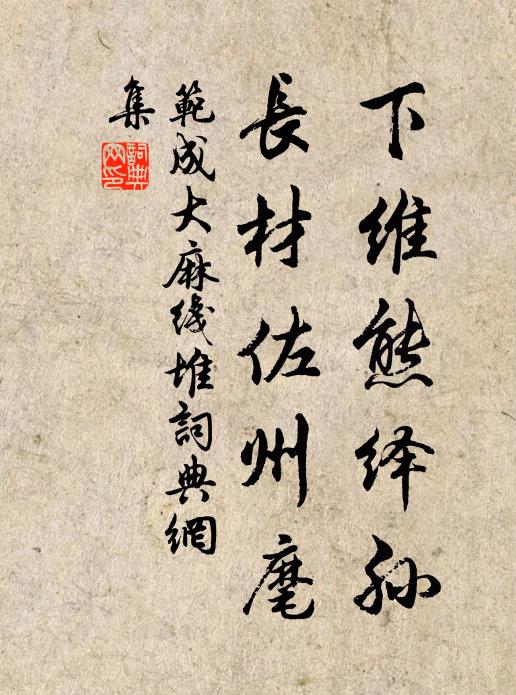 下维熊绎孙
長材佐州麾
範成大麻綫堆詞典網
集
詞典
网印